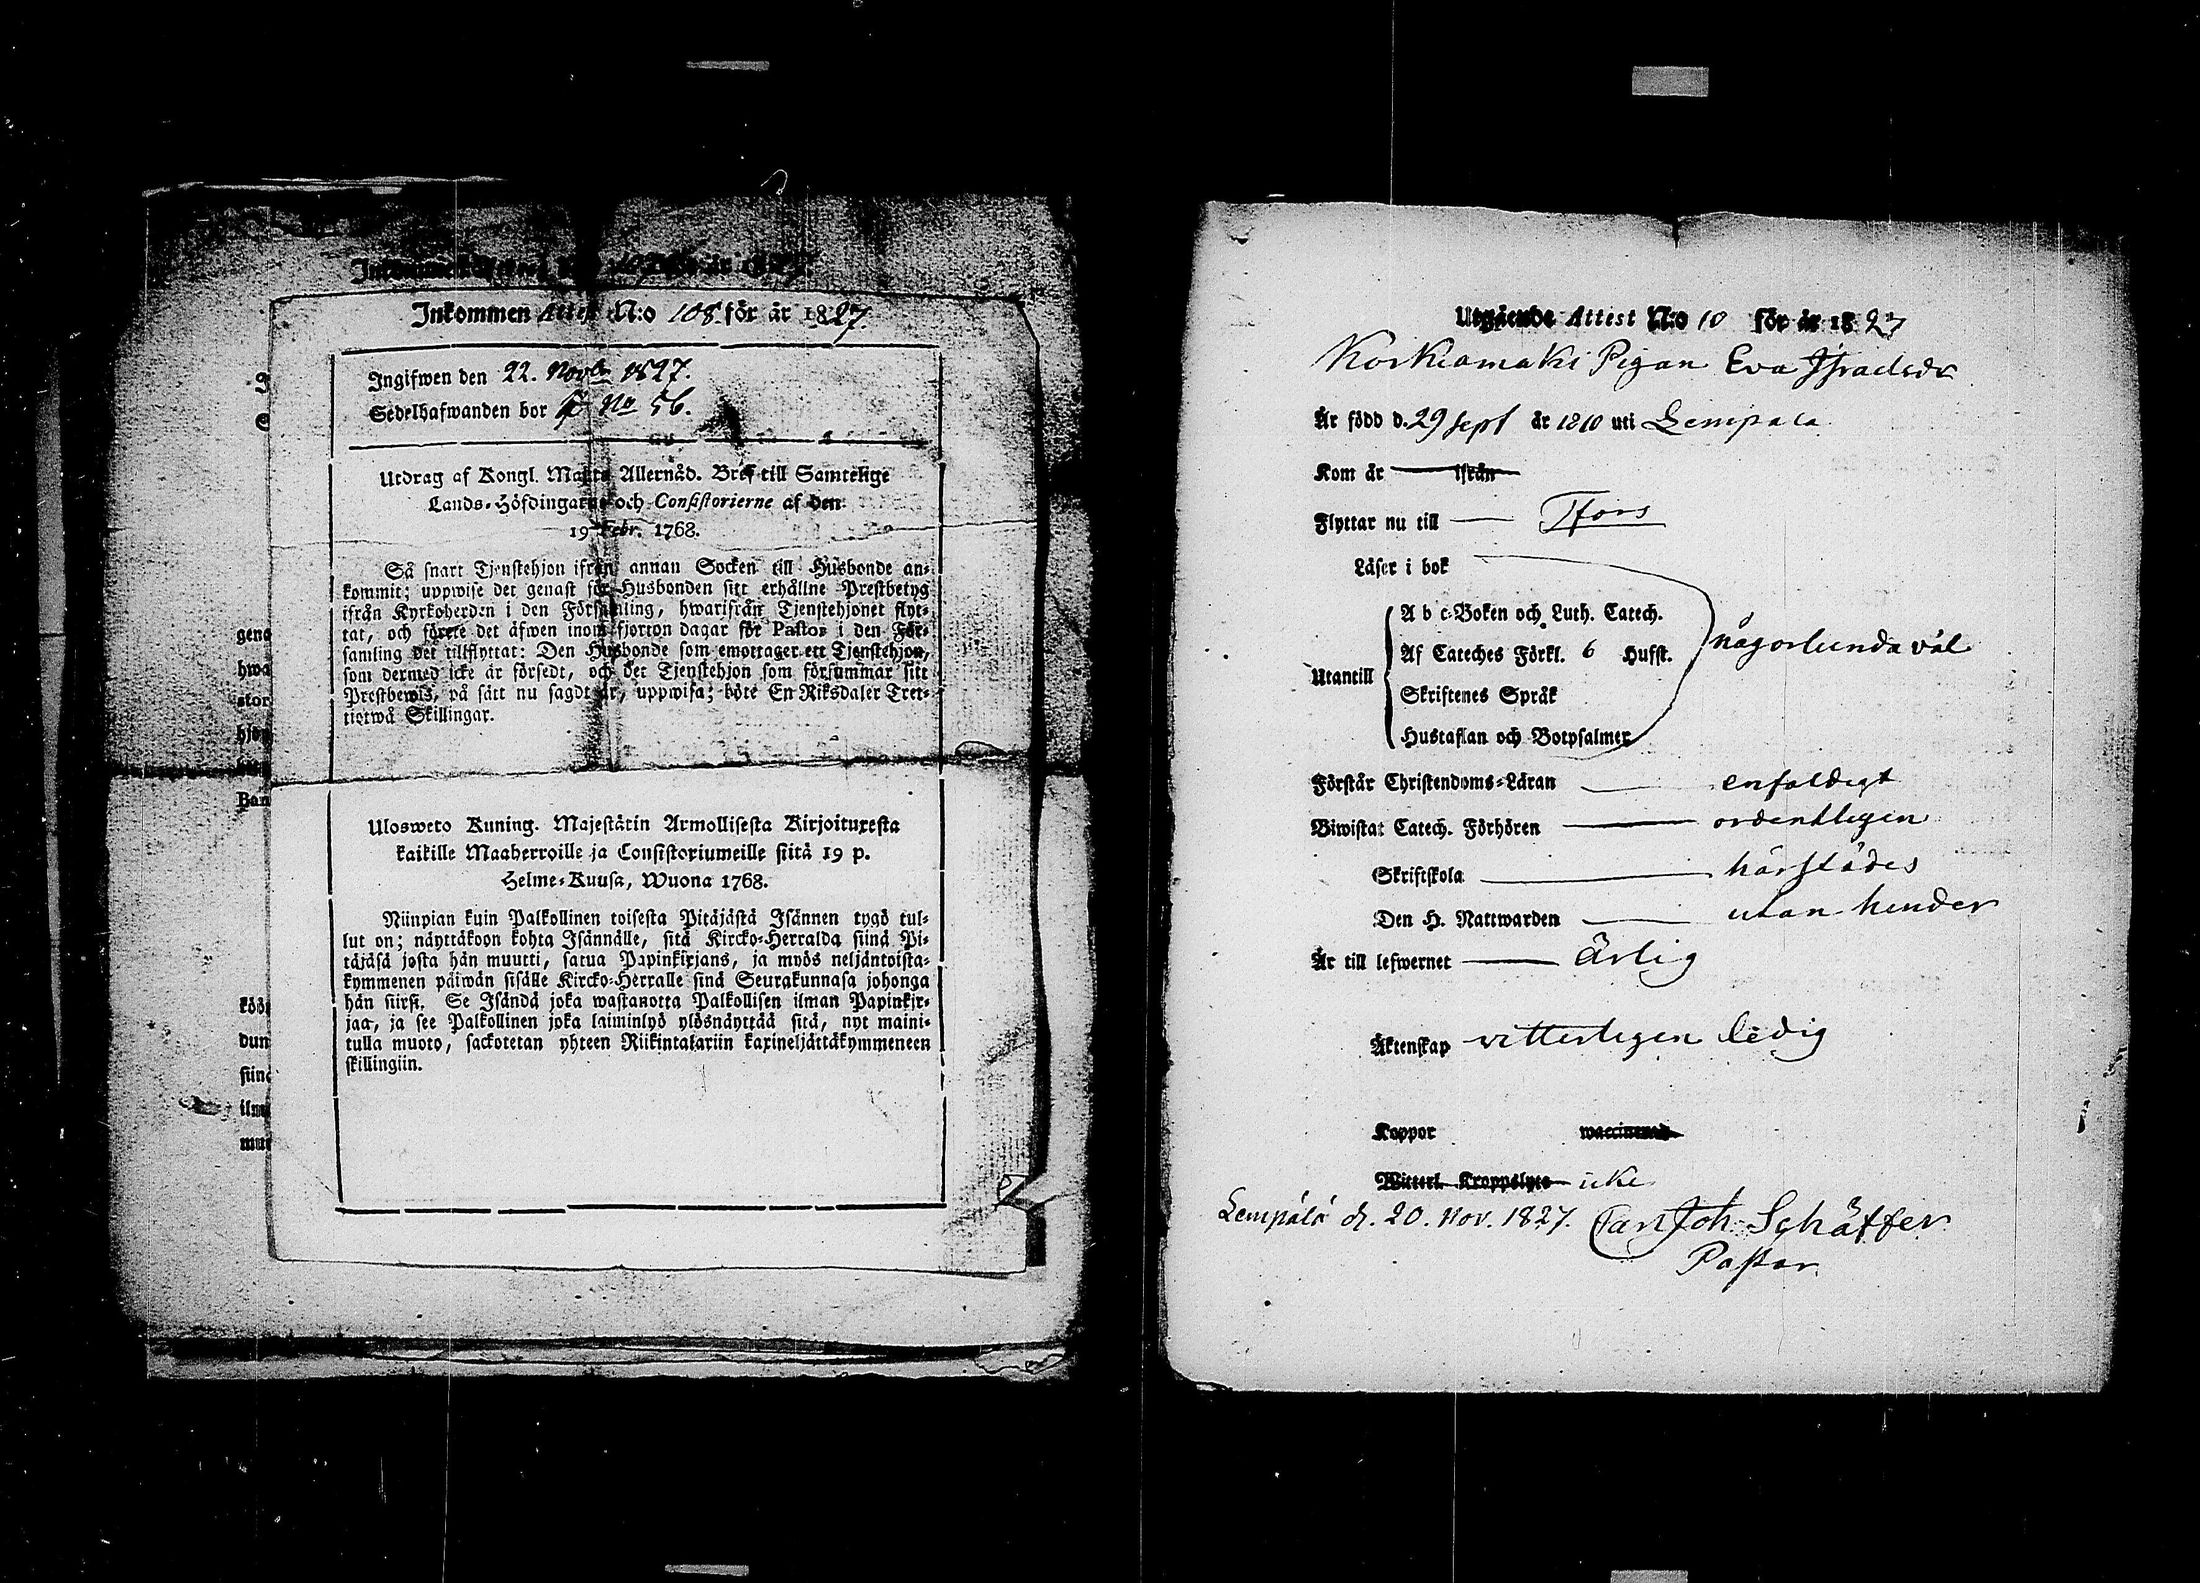 Inkommen Attest N:o 108 för år 1827.
Ingifwen den 22. Novbr 1827.
Sedelhafwanden bor No 56.
Utdrag af Kongl. Maj:ts Allernåd. Bref till Samtelige
Lands-Höfdingarne och Consistorierne af den
19 Febr. 1768.
Så snart Tjenstehjon ifrån annan Socken till Husbonde an-
kommit; uppwise det genast för Husbonden sitt erhållne Prestbetyg
ifrån Kyrkoherden i den Församling, hwarifrån Tjenstehjonet flyt-
tat, och förete det äfwen inom fjorton dagar för Pastor i den För-
samling det tillflyttat: Den Husbonde som emottager ett Tjenstehjon,
som dermed icke är försedt, och det Tjenstehjon som försummar sitt
Prestbewis, på sätt nu sagdt är, uppwisa; böte En Riksdaler Tret-
tiotwå Skillingar.
Ulosweto Kuning. Majestätin Armollisesta Kirjoituxesta
kaikille Maaherroille ja Consistoriumeille siitä 19 p.
Helme-Kuusa, Wuona 1768.
Niinpian kuin Palkollinen toisesta Pitäjästä Isännen tygö tul-
lut on; näyttäkoon kohta Isännälle, sitä Kircko-Herralda siinä Pi-
täjäsä josta hän muutti, saatua Papinkirjans, ja myös neljäntoista-
kymmenen päiwän sisälle Kircko-Herralle sinä Seurakunnasa johonga
hän siirsi. Se Isändä joka wastanotta Palkollisen ilman Papinkir-
jaa, ja see Palkollinen joka laiminlyö ylösnäyttää sitä, nyt maini-
tulla muoto, sackotetan yhteen Riikintalariin kaxineljättäkymmeneen
skillingiin.
Utgående Attest N:o 10 för år 1827
Korkiamäki Pigan Eva Israelsdr
Är född d. 29 Sept år 1810 uti Lempälä
Kom år ifrån
Flyttar nu till Tfors
Läser i bok
Utantill
A b c-Boken och Luth. Catech.
Af Cateches Förkl. 6 Hufst.
Skriftenes Språk
Hustaflan och Botpsalmer
någorlunda väl
Förstår Christendoms-Läran enfaldigt
Biwistat Catech. Förhören ordentligen
Skriftskola härstädes
Den H. Nattwarden utan hinder
Är till lefwernet ärlig
Äktenskap vitterligen ledig
Koppor waccinerad
Witterl. Kroppslyte icke
Lempälä d. 20. Nov. 1827. Carl Joh. Schäffer
Pastor